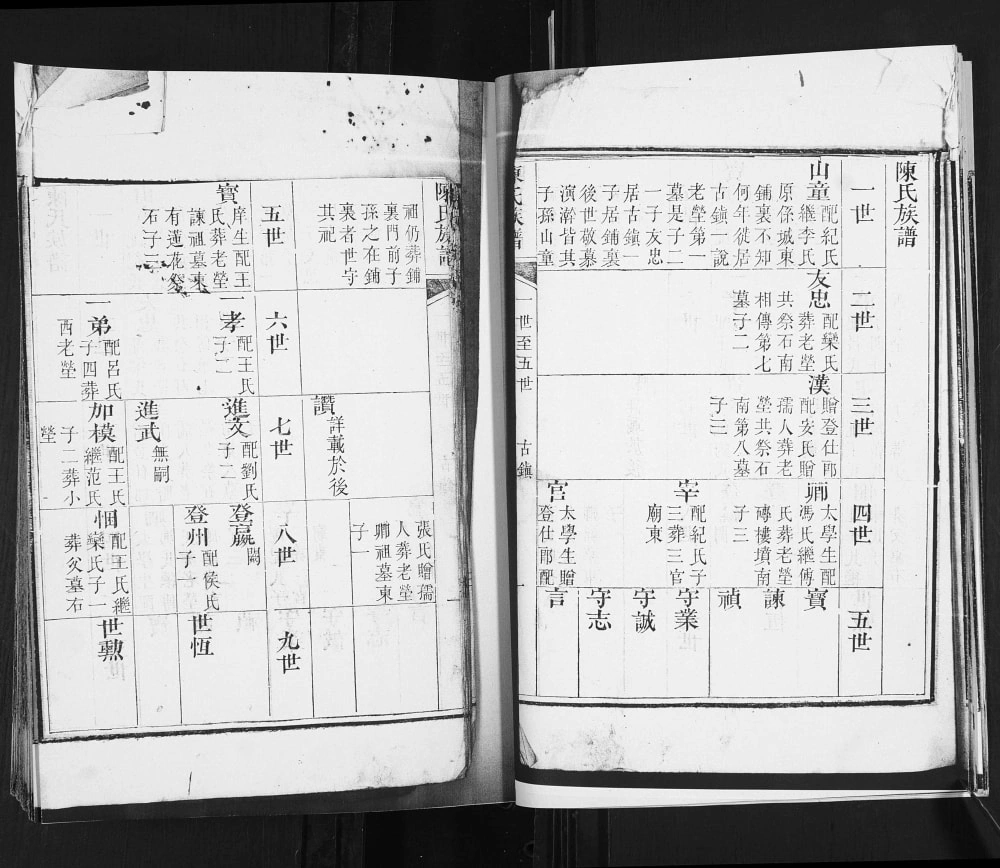 陳氏族譜
一世
山童
配紀氏
繼李氏
原係城東
鋪裏不知
何年徙居
古鎮一說
老塋第一
墓是子二
一子友忠
居古鎮一
子居鋪裏
後世敬慕
演瀚皆其
子孫山童
二世
友忠
配欒氏
葬老塋
共祭石南
相傳第七
墓子二
三世
漢
贈登仕郎
配安氏贈
孺人葬老
塋共祭石
南第八墓
子三
四世
卿
太學生配
馮氏繼傅
氏葬老塋
磚樓墳南
子三
宰
配紀氏子
三葬三官
廟東
官
太學生贈
登仕郎配
五世
寶
諫
禎
守業
守誠
守志
言
陳氏族譜
一世至五世
古鎮
陳氏族譜
祖仍葬鋪
裏門前子
孫之在鋪
裏者世守
其祀
張氏贈孺
人葬老塋
卿祖墓東
子一
五世
寶
庠生配王
氏葬老塋
諫祖墓東
有蓮花祭
石子二
讚
詳載於後
六世
一孝
配王氏
子二
一弟
配呂氏
子四葬
西老塋
七世
進文
配劉氏
子二
進武
無嗣
加模
配王氏
繼范氏
子二葬小
塋
八世
登瀛
闕
登州
配侯氏
子一
悃
配王氏繼
欒氏子一
葬父墓右
九世
世恆
世勲